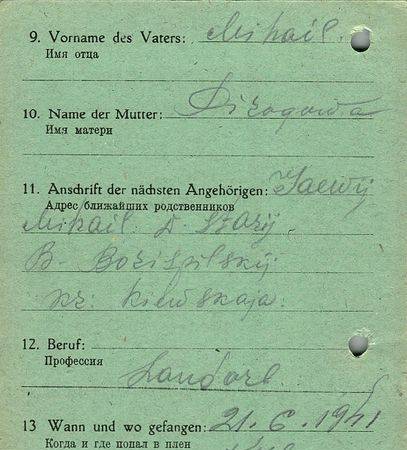 9. Vorname des Vaters: Mihail.
Имя отца
10. Name der Mutter:
Имя матери
11. Anschrift der nächsten Angehörigen:
Адрес ближайших родственников
Mihail D. Starij.
B- Borispilskij
kr: kiewskaja.
12. Beruf:
Профессия
Landarb.
13 Wann und wo gefangen: 21.6.1941
Когда и где попал в плен